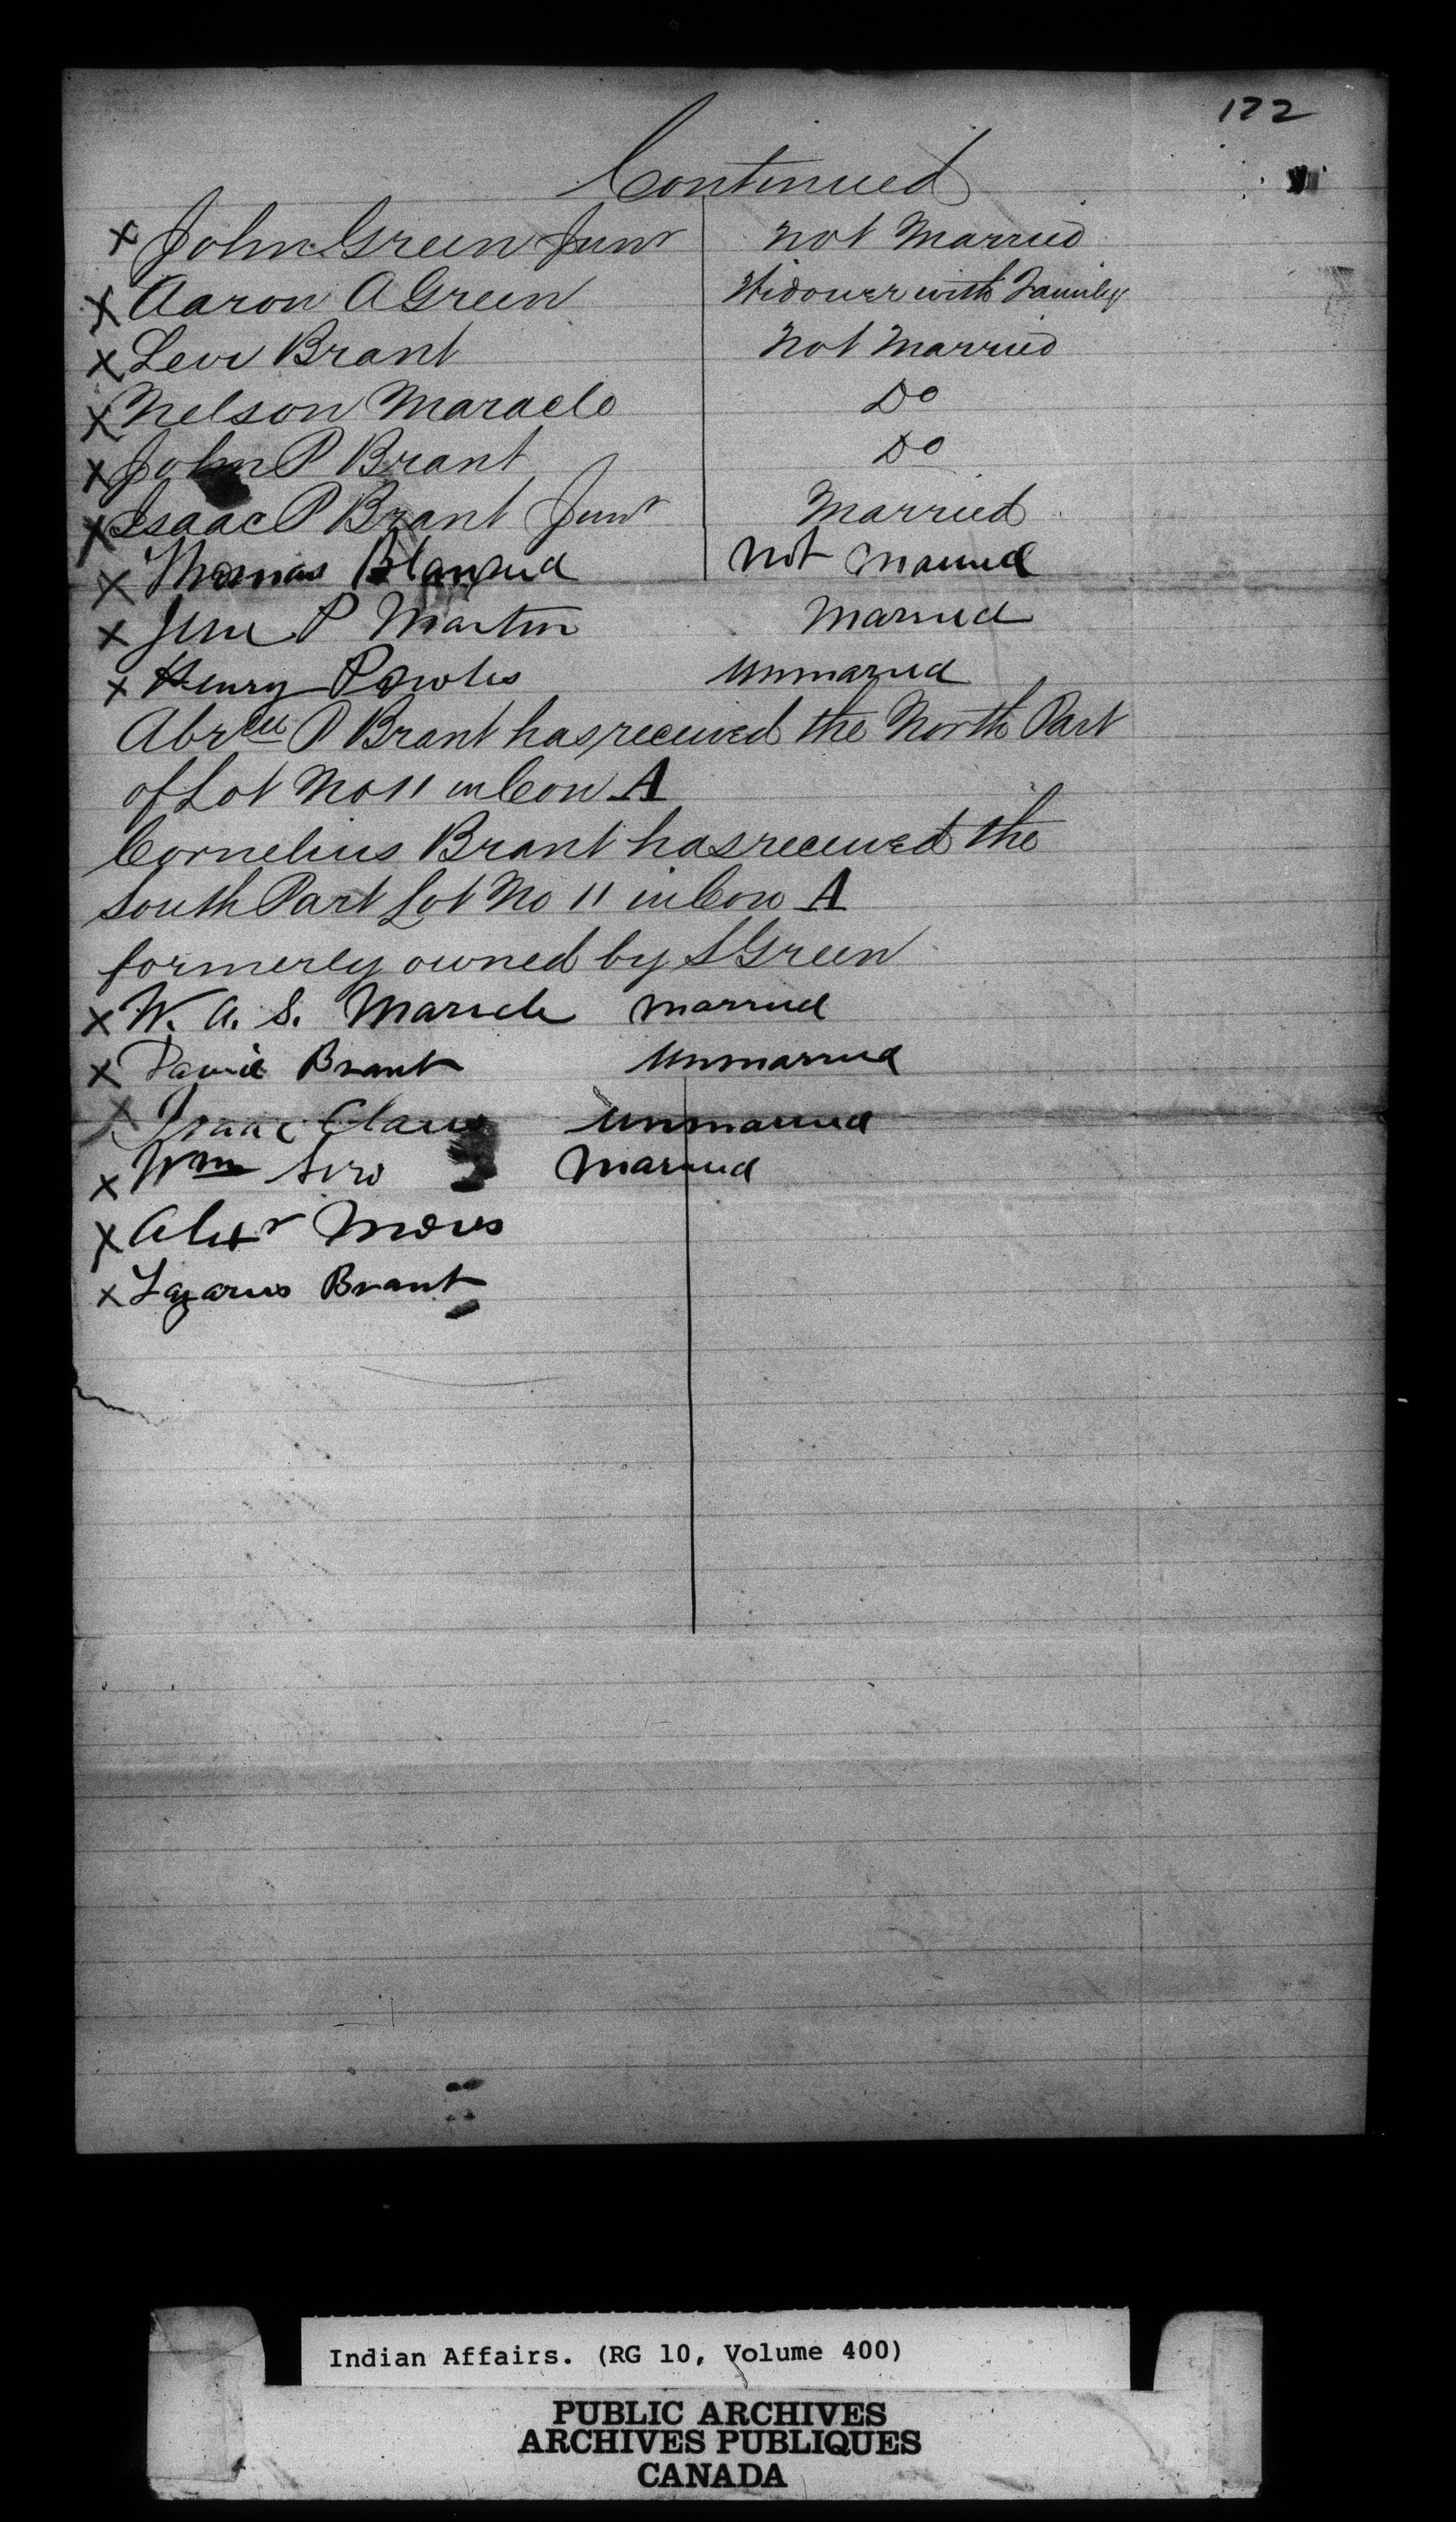 122
Continued
x John Green Junr not Married
x Aaron A Green Widower with Family
x Levi Brant Not Married
x Nelson Maracle Do
x John P Brant Do
x Isaac P Brant Junr Married
x Thomas Not Married
x P Martin Married
x Henry Powles Unmarried
P Brant has received the North Part
of Lot No 11 in Con A
Cornelius Brant has received the
South Part Lot No 11 in Con A
formerly owned by S Green
x W. A. S. Maracle Married
x David Brant Unmarried
x Isaac Claus Unmarried
x Wm Sero Married
x Alexr Moses
x Lazarus Brant
Indian Affairs. (RG 10, Volume 400)
PUBLIC ARCHIVES
ARCHIVES PUBLIQUES
CANADA